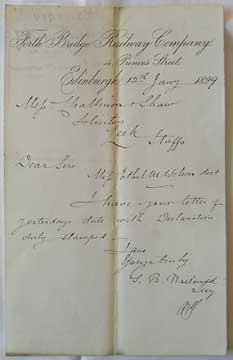 Forth Bridge Railway Company
Princes Street
Edinburgh 12th Jany 1899
Mess Challinor & Shaw
Solicitors
Leek
Staffs
Dear Sirs
Miss Ethel M. Nelson decd
I have your letter of
yesterdays date with Declaration
duly stamped
I am
Yours truly
G. B.
Secy